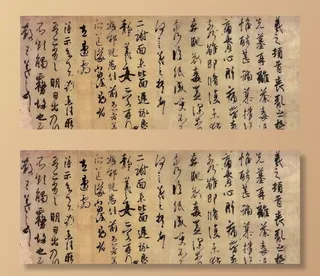 羲之頓首喪亂之極
先墓再離荼毒追
惟酷甚號慕摧絕
痛貫心肝痛當奈何
奈何雖即脩復未獲
奔馳哀毒益深奈何
奈何臨紙感哽不知
何言羲之頓首頓首
二謝面未比面遲詠良
不靜羲之女愛再拜
想邵兒悉佳前患者善
左邊劇
得示知足下猶未佳耿耿
吾亦劣劣明日出乃行
不欲觸霧故也遲散
羲之頓首喪亂之極
先墓再離荼毒追
惟酷甚號慕摧絕
痛貫心肝痛當奈何
奈何雖即脩復未獲
奔馳哀毒益深奈何
奈何臨紙感哽不知
何言羲之頓首頓首
二謝面未比面遲詠良
不靜羲之女愛再拜
想邵兒悉佳前患者善
左邊劇
得示知足下猶未佳耿耿
吾亦劣劣明日出乃行
不欲觸霧故也遲散